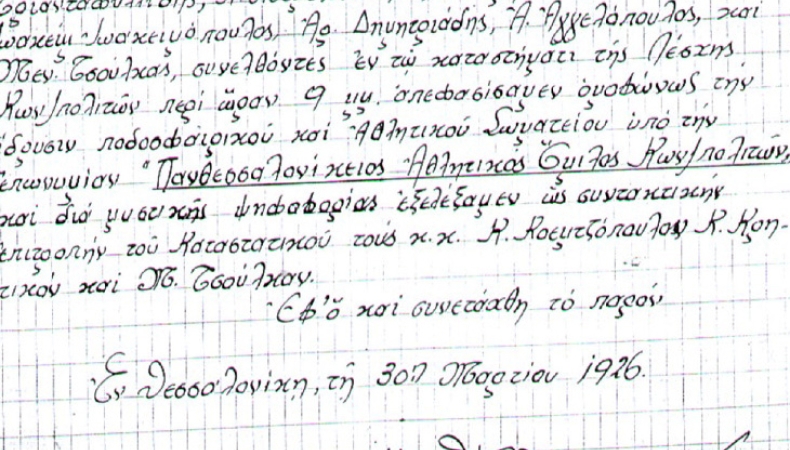 Ἰωακεὶμ Ἰωακειμόπουλος, Ἀρ. Δημητριάδης, Ἀ. Ἀγγελόπουλος, καὶ
Μεν. Τσούλκας, συνελθόντες ἐν τῷ καταστήματι τῆς Λέσχης
Κων/πολιτῶν περὶ ὥραν 9 μμ. ἀπεφασίσαμεν ὁμοφώνως τὴν
ἵδρυσιν ποδοσφαιρικοῦ καὶ Ἀθλητικοῦ Σωματείου ὑπὸ τὴν
ἐπωνυμίαν "Πανθεσσαλονίκειος Ἀθλητικὸς Ὅμιλος Κων/πολιτῶν,
καὶ διὰ μυστικῆς ψηφοφορίας ἐξελέξαμεν ὡς συντακτικὴν
ἐπιτροπὴν τοῦ Καταστατικοῦ τοὺς κ.κ. Κ. Κρεμτζόπουλον Κ. Κρη-
τικὸν καὶ Μ. Τσούλκαν.
Ἐφ' ὅ καὶ συνετάχθη τὸ παρόν
Ἐν Θεσσαλονίκῃ, τῇ 30ῃ Μαρτίου 1926.